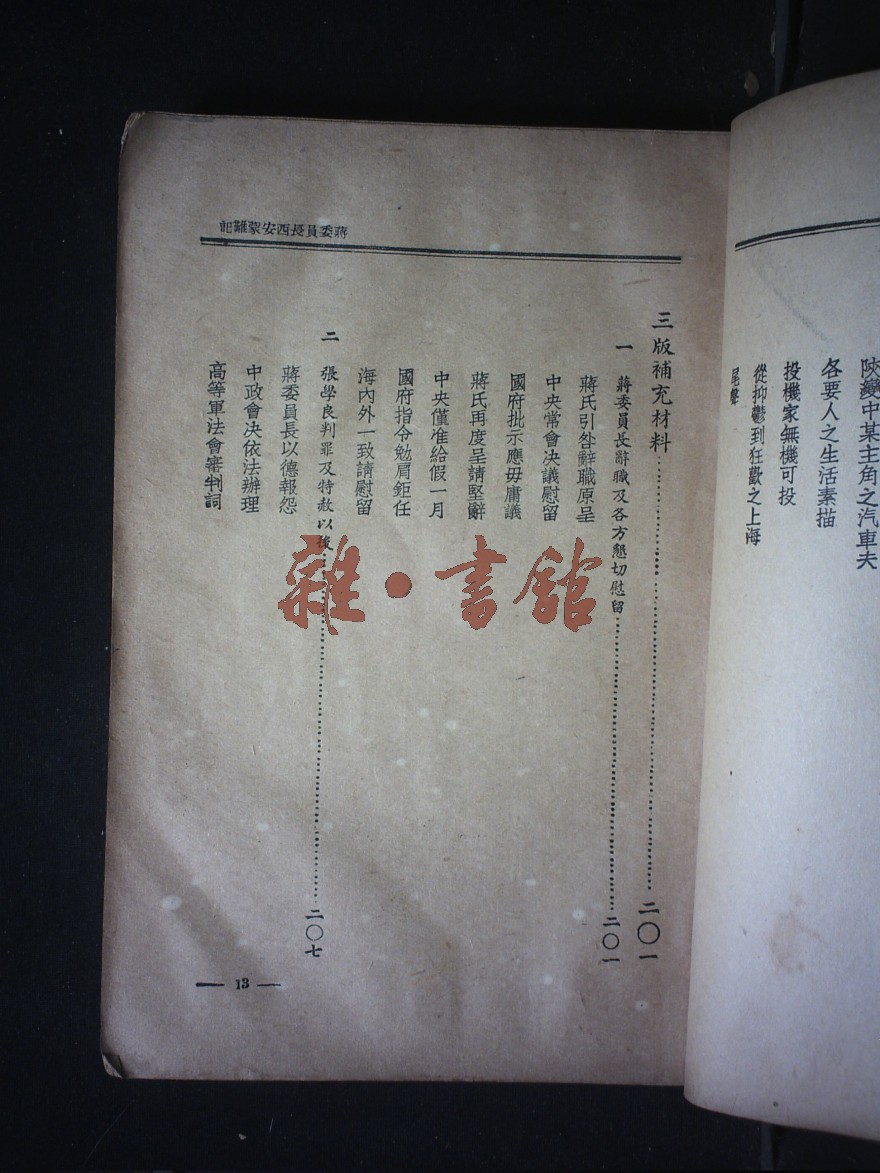 陝變中某主角之汽車夫
各要人之生活素描
投機家無機可投
從抑鬱到狂歡之上海
尾聲
蔣委員長西安蒙難記
三版補充材料……二〇一
一 蔣委員長辭職及各方懇切慰留……二〇一
蔣氏引咎辭職原呈
中央常會決議慰留
國府批示應毋庸議
蔣氏再度呈請堅辭
中央僅准給假一月
國府指令勉肩鉅任
海內外一致請慰留
二 張學良判罪及特赦以後……二〇七
蔣委員長以德報怨
中政會決依法辦理
高等軍法會審判詞
— 13 —
雜·書館